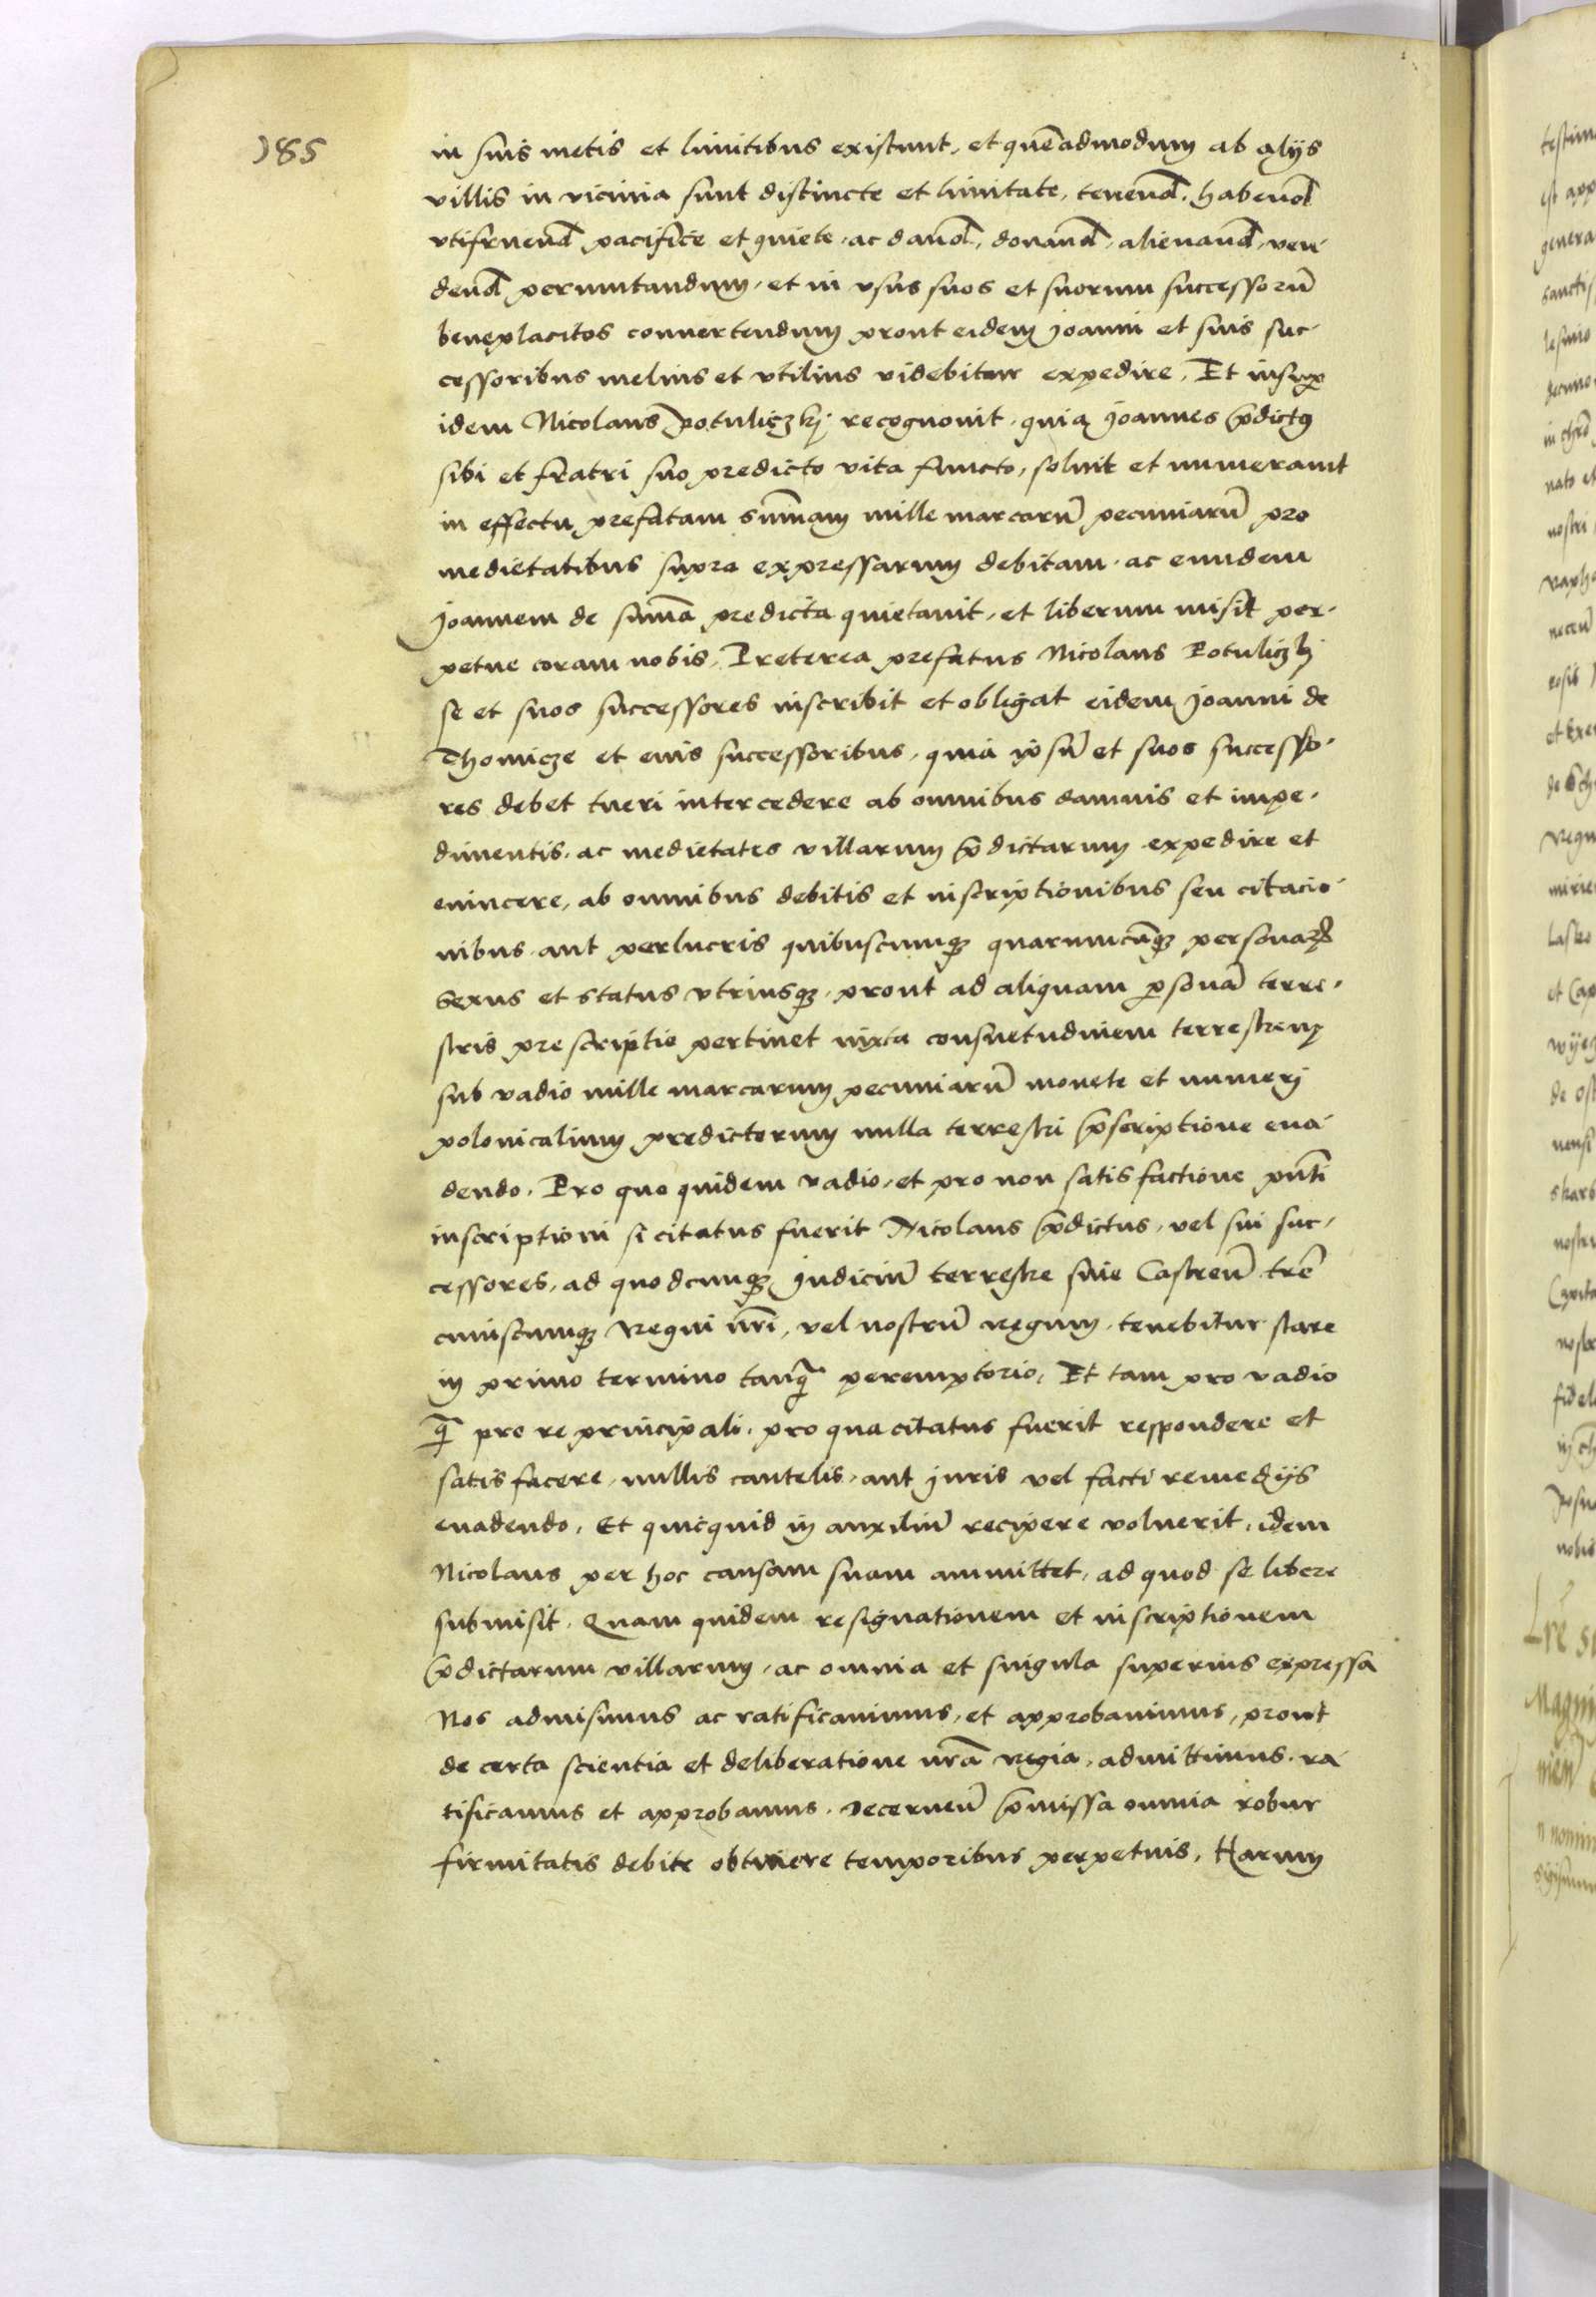 185
in suis metis et limitibus existunt, et quēadmodum ab alijs
villis in vicinia sunt distincte et limitate, tenend̄. habend̄
vtifruend̄ pacifice et quiete, ac dand̄, donand̄, alienand̄, ven-
dend̄ permutandum, et in vsus suos et suorum successorū
beneplacitos conuertendum prout eidem Joanni et suis suc-
cessoribus melius et vtilius videbitur expedire. Et insup̱
idem Nicolaus Potuliczkj recognouit, quia Joannes p̄dictꝰ
sibi et fratri suo predicto vita functo, soluit et numerauit
in effectu prefatam sum̄am mille marcarū pecuniarū pro
medietatibus supra expressarum debitam, ac eundem
Joannem de sum̄a predicta quietauit, et liberum misit per-
petue coram nobis. Preterea prefatus Nicolaus Potuliczkj
se et suos successores inscribit et obligat eidem Joanni de
Thomicze et eius successoribus, quia ip̄sū et suos successo-
res debet tueri intercedere ab omnibus damnis et impe-
dimentis, ac medietates villarum p̄dictarum expedire et
euincere, ab omnibus debitis et inscriptionibus seu citacio-
nibus, aut perlucris quibuscumqꝫ quarumcūqꝫ personaꝝ
sexus et status vtriusqꝫ, prout ad aliquam p̱sonā terre-
stris prescriptio pertinet iuxta consuetudinem terrestrem
sub vadio mille marcarum pecuniarū monete et numerj
polonicalium predictorum nulla terrestri p̄scriptione eua-
dendo. Pro quo quidem vadio, et pro non satisfactione pn̄ti
inscriptioni si citatus fuerit Nicolaus p̄dictus, vel sui suc-
cessores, ad quodcumqꝫ Judiciū terrestre siue Castren̄ trē
cuiuscumqꝫ Regni nr̄i, vel nostrū regium, tenebitur stare
in primo termino tanq̄ peremptorio. Et tam pro vadio
q̄ pro re principali, pro qua citatus fuerit respondere et
satisfacere, nullis cautelis, aut Juris vel facti remedijs
euadendo. Et quicquid in auxiliū recipere voluerit, idem
Nicolaus per hoc causam suam ammittet, ad quod se libere
submisit. Quam quidem resignationem et inscriptionem
p̄dictarum villarum, ac omnia et singula superius expressa
Nos admisimus ac ratificauimus, et approbauimus, prout
de certa scientia et deliberatione nr̄a regia, admittimus. ra-
tificamus et approbamus. decernen̄ p̄missa omnia robur
firmitatis debite obtinere temporibus perpetuis. Harum